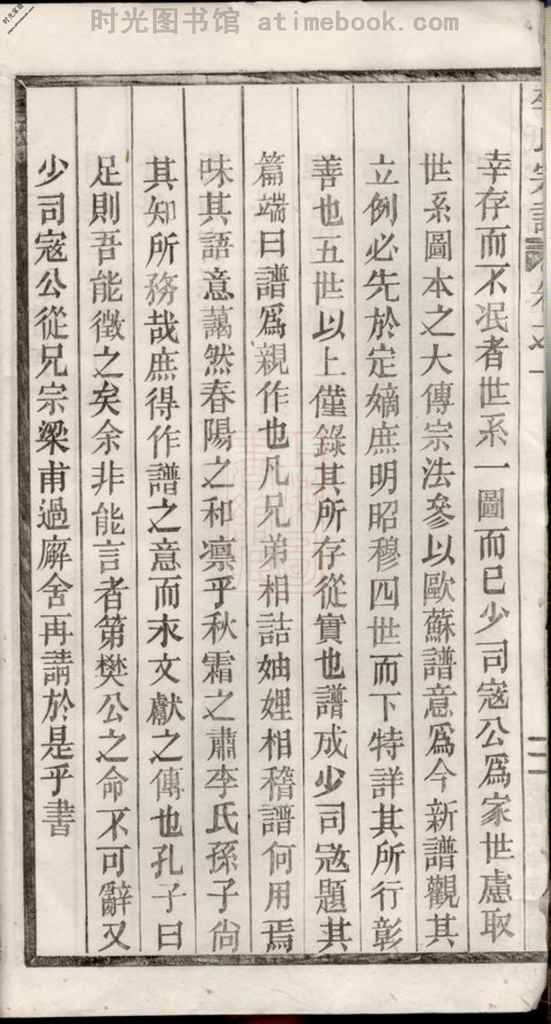 时光图书馆 atimebook.com
幸存而不泯者世系一圖而已少司寇公爲家世慮取
世系圖本之大傳宗法參以歐蘇譜意爲今新譜觀其
立例必先於定嫡庶明昭穆四世而下特詳其所行彰
善也五世以上僅錄其所存從實也譜成少司寇題其
篇端曰譜爲親作也凡兄弟相詰妯娌相稽譜何用焉
味其語意藹然春陽之和凛乎秋霜之肅李氏孫子尙
其知所務哉庶得作譜之意而末文獻之傳也孔子曰
足則吾能徵之矣余非能言者第樊公之命不可辭又
少司寇公從兄宗梁甫過廨舍再請於是乎書